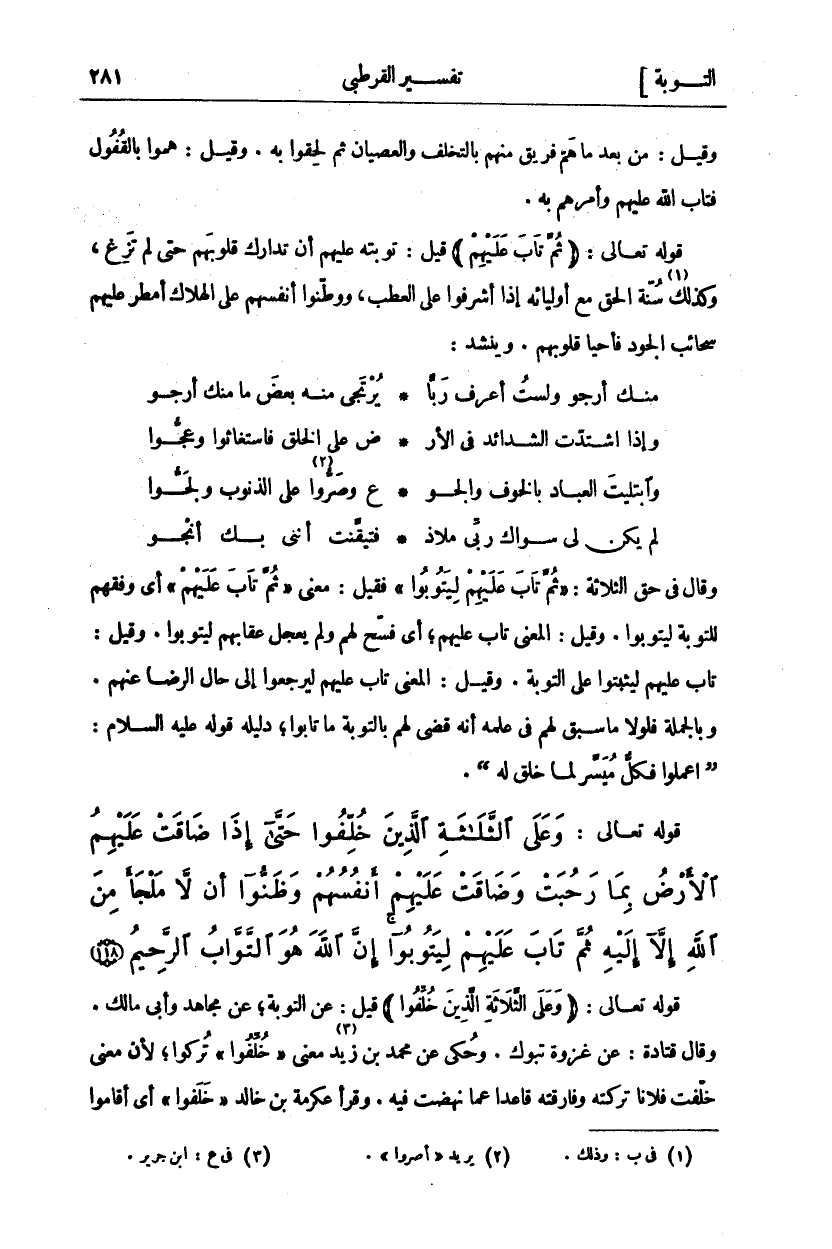 التــوبة ] تفســير القرطبى ٢٨١
وقيـل : من بعد ما هَمّ فريق منهم بالتخلف والعصيان ثم لحِقوا به . وقيـل : هموا بالقُفُول
فتاب الله عليهم وأمرهم به .
قوله تعـالى : ﴿ ثُمَّ تَابَ عَلَيْهِمْ ﴾ قيل : توبته عليهم أن تدارك قلوبَهم حتى لم تَزِغ ،
وكذلك (١) سُنّة الحق مع أوليائه إذا أشرفوا على العطب، ووطّنوا أنفسهم على الهلاك أمطر عليهم
سحائب الجود فأحيا قلوبهم . وينشد :
منـك أرجو ولستُ أعرف رَبًّا * يُرْتَجَى منـه بعضَ ما منك أرجـو
وإذا اشـتدّت الشـدائد فى الأر * ض على الخلق فاستغاثوا وعجُّـوا
وٱبتليتَ العباد بالخوف والجـو * ع وصَرُّوا (٢) على الذنوب ولَجُّـوا
لم يكن لى سـواك ربّى ملاذ * فتيقَّنت أننى بـك أنْجُـو
وقال فى حق الثلاثة : «ثُمَّ تَابَ عَلَيْهِمْ لِيَتُوبُوا» فقيل : معنى «ثُمَّ تَابَ عَلَيْهِمْ» أى وفقهم
للتوبة ليتوبوا . وقيل : المعنى تاب عليهم؛ أى فسّح لهم ولم يعجل عقابهم ليتوبوا . وقيل :
تاب عليهم ليثبتوا على التوبة . وقيـل : المعنى تاب عليهم ليرجعوا إلى حال الرضـا عنهم .
وبالجملة فلولا ماسبق لهم فى علمه أنه قضى لهم بالتوبة ما تابوا؛ دليله قوله عليه السـلام :
” اعملوا فكلٌّ مُيَسَّر لمـا خلق له “ .
قوله تعالى : وَعَلَى ٱلثَّلَـٰثَـةِ ٱلَّذِينَ خُلِّفُوا حَتَّىٰٓ إِذَا ضَاقَتْ عَلَيْهِمُ
ٱلْأَرْضُ بِمَا رَحُبَتْ وَضَاقَتْ عَلَيْهِمْ أَنفُسُهُمْ وَظَنُّوٓا أَن لَّا مَلْجَأَ مِنَ
ٱللَّهِ إِلَّآ إِلَيْهِ ثُمَّ تَابَ عَلَيْهِمْ لِيَتُوبُوٓا ۚ إِنَّ ٱللَّهَ هُوَ ٱلتَّوَّابُ ٱلرَّحِيمُ ١١٨
قوله تعـالى : ﴿ وَعَلَى الثَّلَاثَةِ الَّذِينَ خُلِّفُوا ﴾ قيل : عن التوبة؛ عن مجاهد وأبى مالك .
وقال قتادة : عن غزوة تبوك . وحُكى عن محمد بن زيد (٣) معنى «خُلِّفُوا» تُركوا؛ لأن معنى
خلّفت فلانا تركته وفارقته قاعدا عما نهضت فيه . وقرأ عكرمة بن خالد «خَلَفوا» أى أقاموا
(١) فى ب : وذلك . (٢) يريد «أصروا» . (٣) فى ع : ابن جرير .